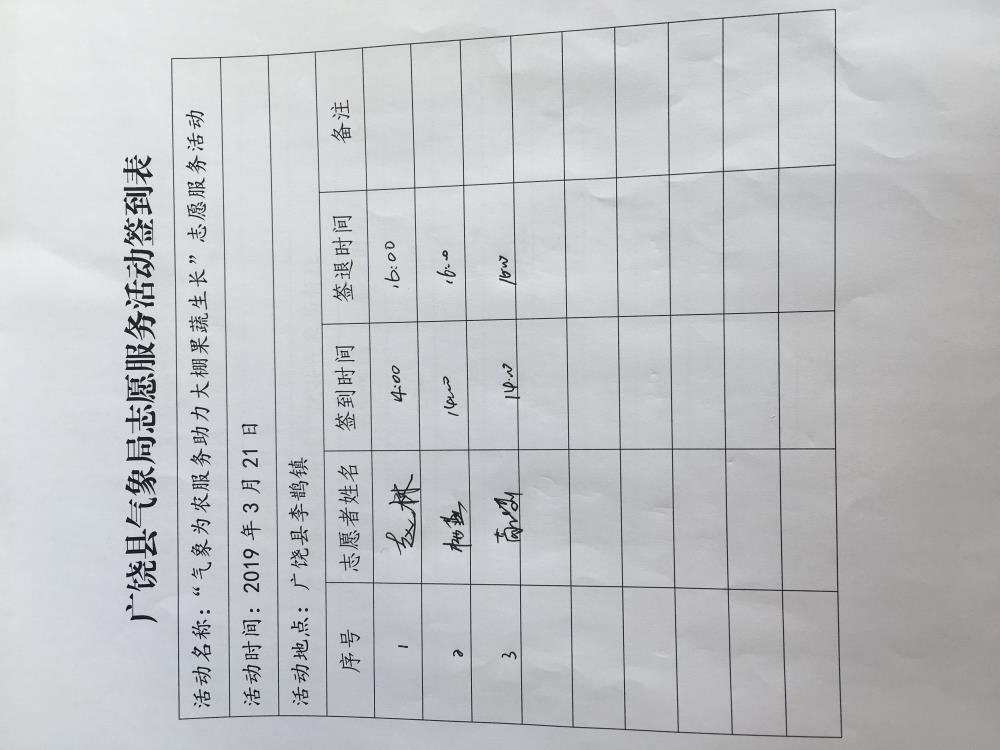 广饶县气象局志愿服务活动签到表
活动名称：“气象为农服务助力大棚果蔬生长”志愿服务活动
活动时间：2019年3月21日
活动地点：广饶县李鹊镇
序号 志愿者姓名 签到时间 签退时间 备注
1 赵林 4:00 16:00
2 14:00 16:00
3 14:00 16:00